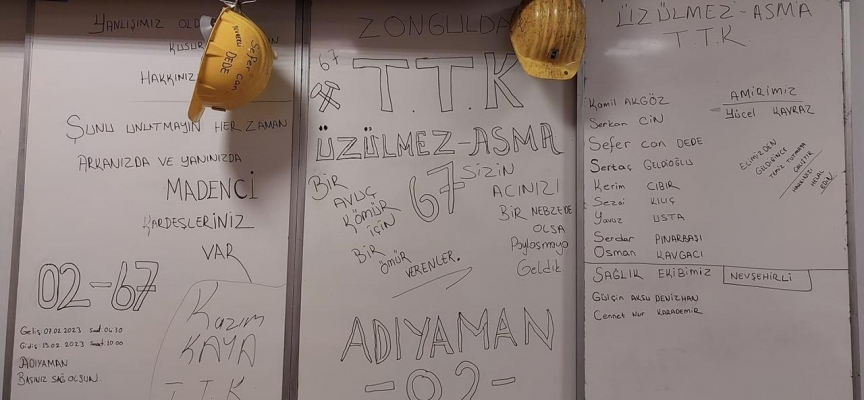 YANLIŞIMIZ OLD
KUSUR
HAKKINIZ
ŞUNU UNUTMAYIN HER ZAMAN
ARKANIZDA VE YANINIZDA
MADENCİ
KARDEŞLERİNİZ
VAR
02-67
Geliş 07.02.2023 Saat 04:30
Gidiş 13.02.2023 Saat 10:00
ADIYAMAN
BAŞINIZ SAĞ OLSUN.
Kazım
KAYA
T.T.K.
Sefer can
DEDE
ZONGULDA
67
T.T.K
ÜZÜLMEZ-ASMA
BİR
AVUÇ
KÖMÜR
İÇİN
BİR
ÖMÜR
VERENLER.
67
SİZİN
ACINIZI
BİR NEBZEDE
OLSA
Paylaşmaya
Geldik
ADIYAMAN
-02-
ÜZÜLMEZ-ASMA
T.T.K
Kamil AKGÖZ
Serkan CİN
Sefer can DEDE
Sertaç GELDİOĞLU
Kerim CIBIR
Sezai KILIÇ
Yavuz USTA
Serdar PINARBAŞI
Osman KAVGACI
= AMİRİMİZ
Yücel KAVRAZ
ELİMİZDEN
GELDİĞİNCE
TEMİZ TUTMAYA
ÇALIŞTIK
HAKKINIZI HELAL
EDİN
SAĞLIK EKİBİMİZ NEVŞEHİRLİ
Gülçin AKSU DENİZHAN
Cennet Nur KARADEMİR